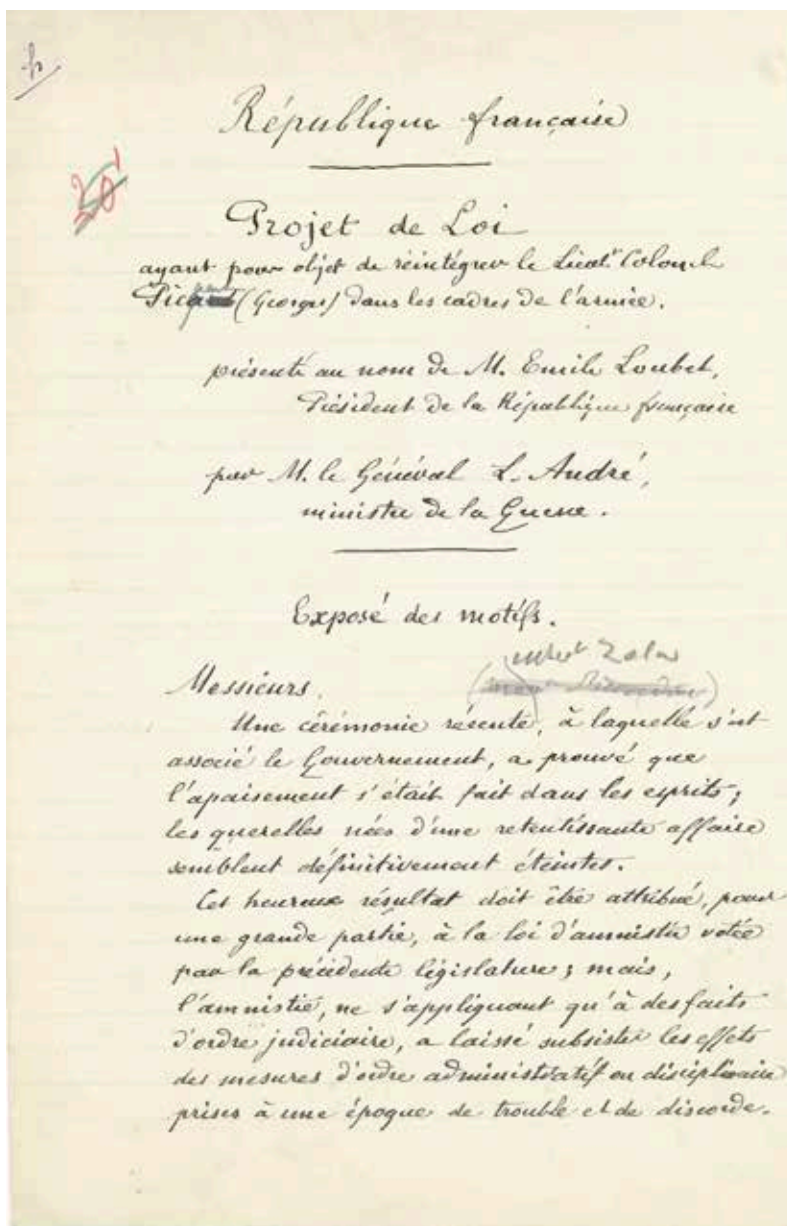 République française
Projet de Loi
ayant pour objet de réintégrer le Lieut. Colonel
(Georges) dans les cadres de l'armée.
présenté au nom de M. Emile Loubet,
Président de la République française
par M. le Général L. André,
ministre de la Guerre.
Exposé des motifs.
Zola
Messieurs,
Une cérémonie récente, à laquelle s'est
associé le Gouvernement, a prouvé que
l'apaisement s'était fait dans les esprits;
les querelles nées d'une retentissante affaire
semblent définitivement éteintes.
Cet heureux résultat doit être attribué, pour
une grande partie, à la loi d'amnistie votée
par la précédente législature; mais,
l'amnistie, ne s'appliquant qu'à des faits
d'ordre judiciaire, a laissé subsister les effets
des mesures d'ordre administratif ou disciplinaire
prises à une époque de trouble et de discorde.